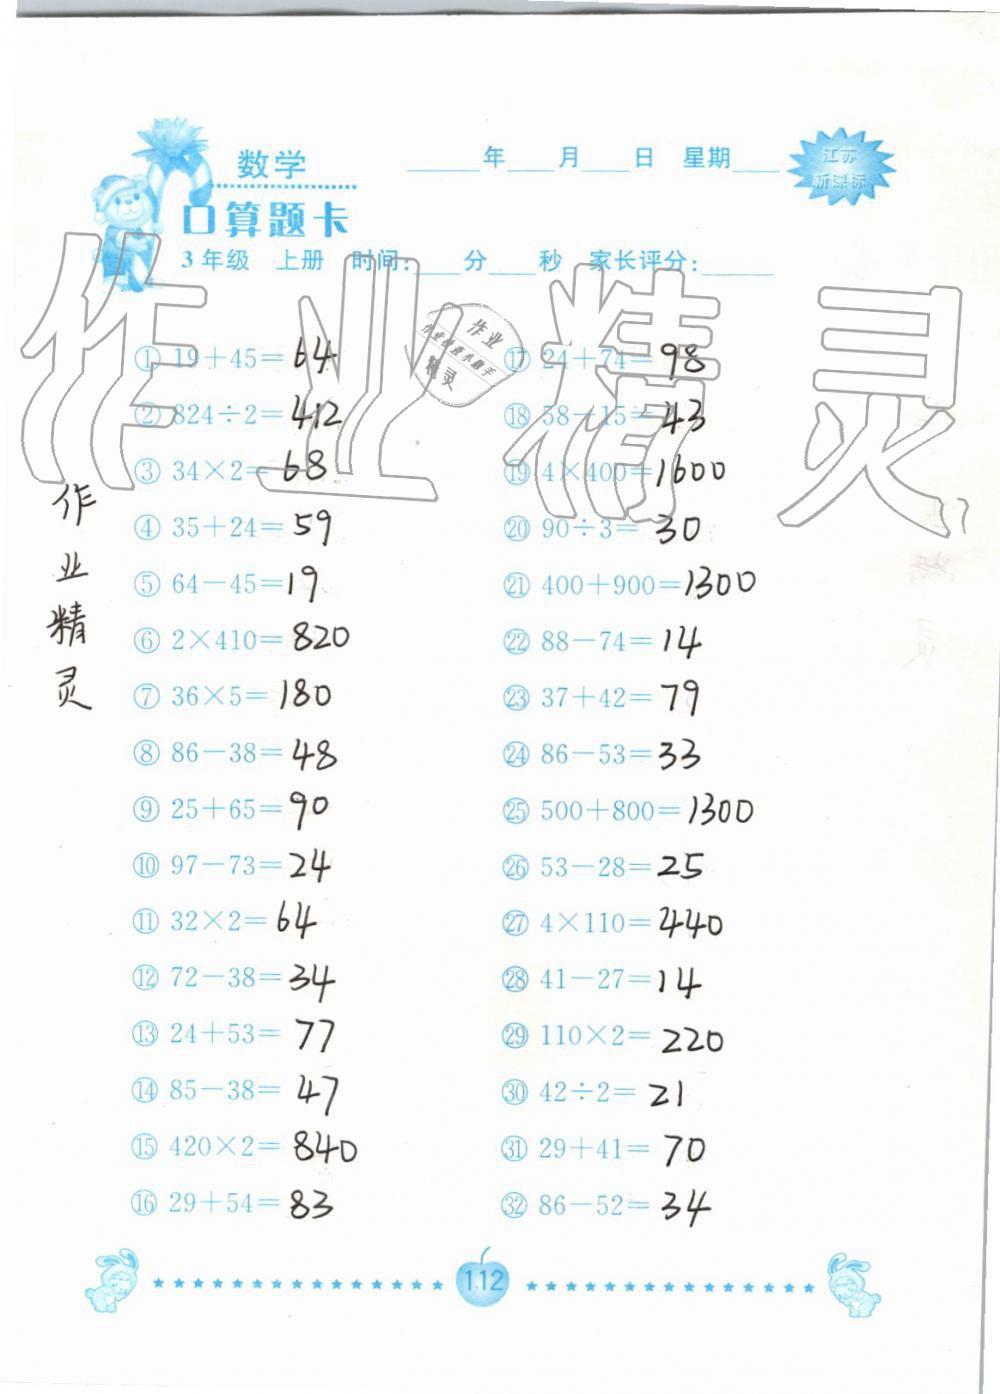 数学
____年____月____日 星期____
江苏
新课标
口算题卡
3年级 上册 时间:____分____秒 家长评分:____
作业精灵
作业
作业检查小助手
精灵
① 19+45=64
② 824÷2=412
③ 34×2=68
④ 35+24=59
⑤ 64-45=19
⑥ 2×410=820
⑦ 36×5=180
⑧ 86-38=48
⑨ 25+65=90
⑩ 97-73=24
⑪ 32×2=64
⑫ 72-38=34
⑬ 24+53=77
⑭ 85-38=47
⑮ 420×2=840
⑯ 29+54=83
⑰ 24+74=98
⑱ 58-15=43
⑲ 4×400=1600
⑳ 90÷3=30
㉑ 400+900=1300
㉒ 88-74=14
㉓ 37+42=79
㉔ 86-53=33
㉕ 500+800=1300
㉖ 53-28=25
㉗ 4×110=440
㉘ 41-27=14
㉙ 110×2=220
㉚ 42÷2=21
㉛ 29+41=70
㉜ 86-52=34
作业精灵
112